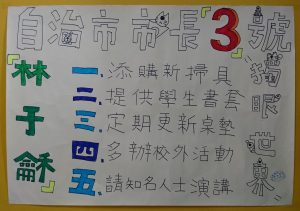 自治市市長「3」號
眼世界
一.添購新掃具
二.提供學生書套
三.定期更新桌墊
四.多辦校外活動
五.請知名人士演講
「林于龢」